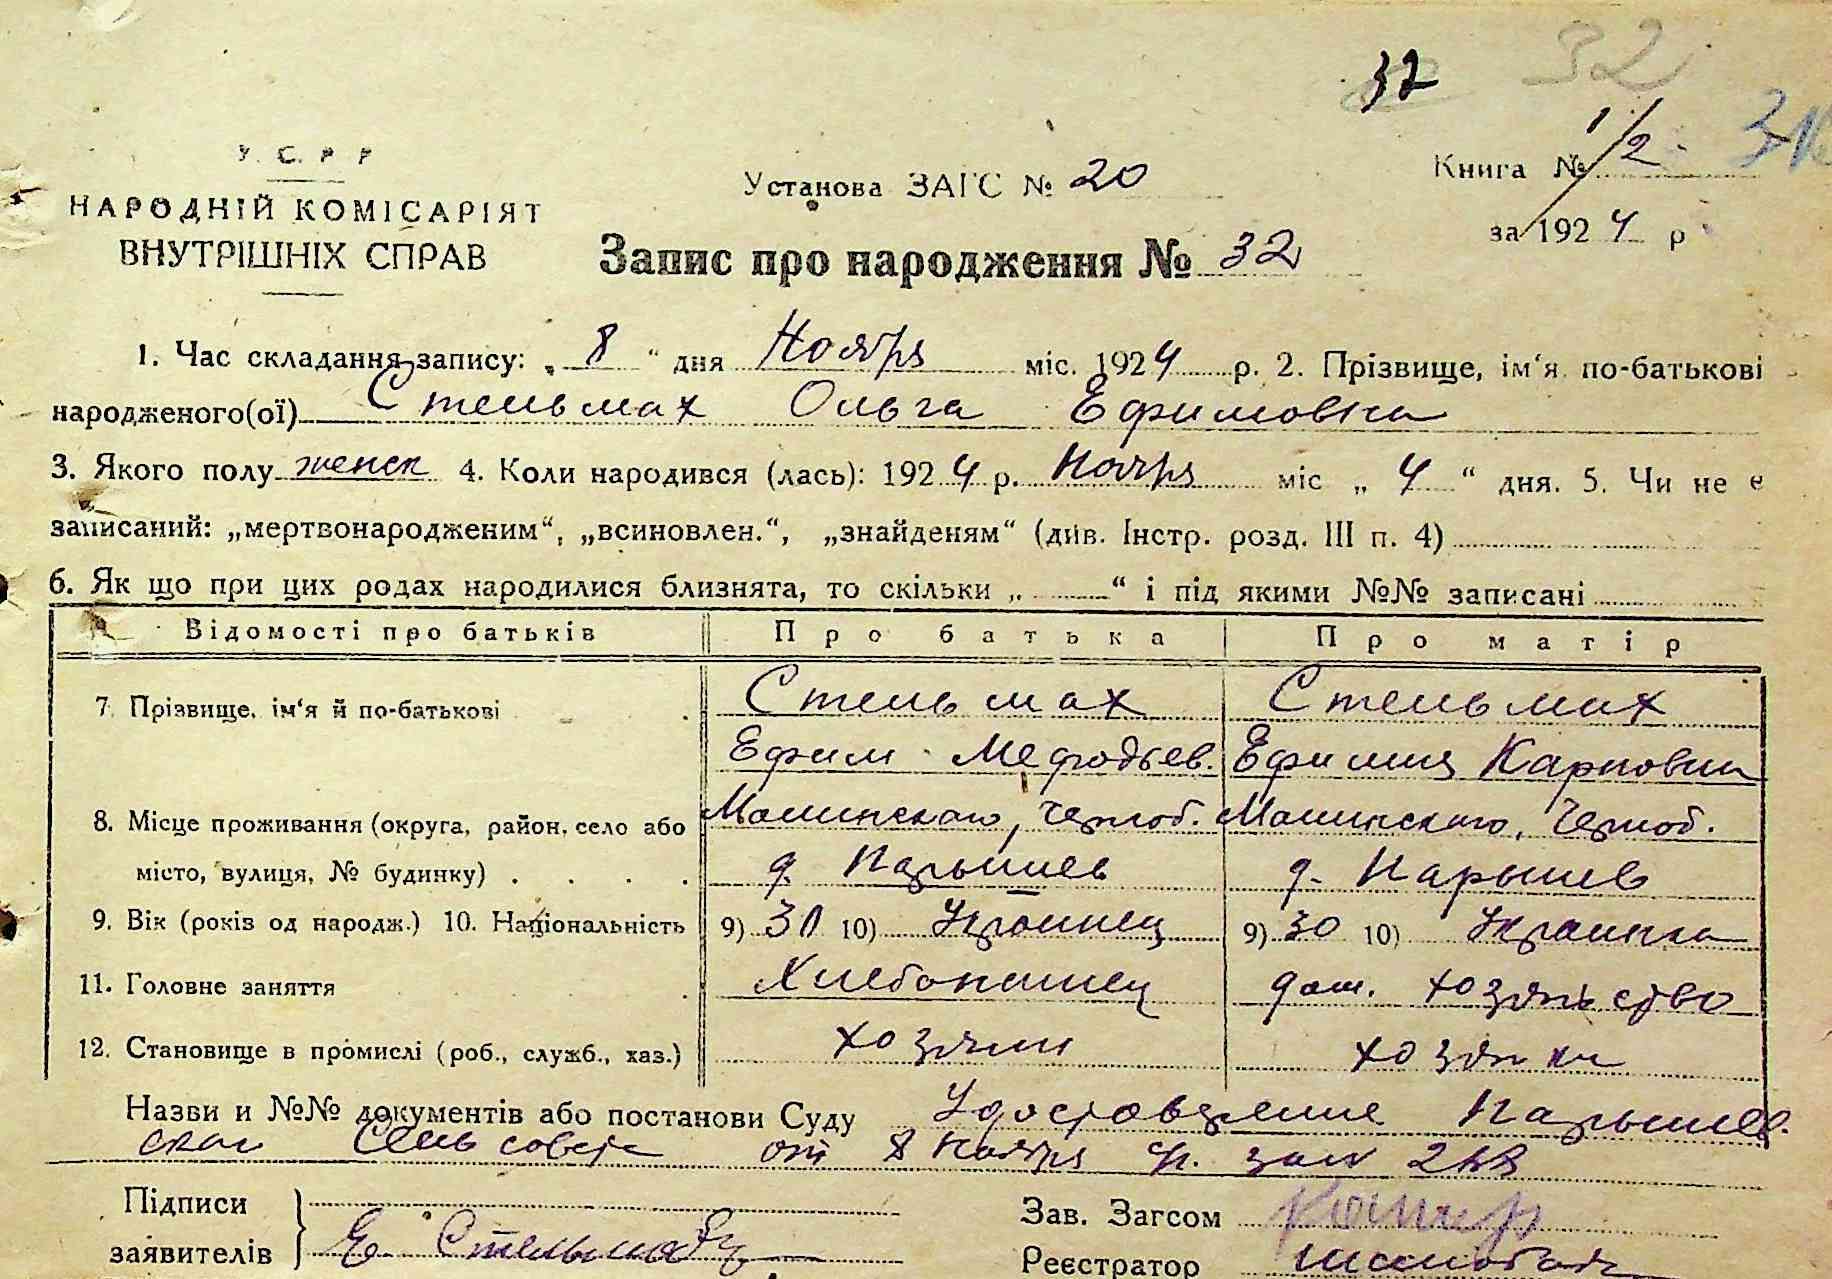 32
32
У. С. Р. Р.
НАРОДНІЙ КОМІСАРІЯТ
ВНУТРІШНІХ СПРАВ
Установа ЗАГС № 20
Книга № 1/2
за 1924 р
Запис про народження № 32
1. Час складання запису: „ 8 “ дня Ноября міс. 1924 р. 2. Прізвище, ім‘я по-батькові
народженого(ої) Стельмах Ольга Ефимовна
3. Якого полу женск 4. Коли народився (лась): 1924 р. Ноября міс „ 4 “ дня. 5. Чи не є
записаний: „мертвонародженим“, „всиновлен.“, „знайденям“ (див. Інстр. розд. III п. 4)
6. Як що при цих родах народилися близнята, то скільки „ “ і під якими №№ записані
Відомості про батьків Про батька Про матір
7. Прізвище, ім‘я й по-батькові Стельмах Стельмах
Ефим Мефодьев. Ефимия Карповна
8. Місце проживання (округа, район, село або Малинского, Черноб. Малинского, Черноб.
місто, вулиця, № будинку) . . . . д. Парышев д. Парышев
9. Вік (років од народж.) 10. Національність 9) 30 10) Украинец 9) 30 10) Украинка
11. Головне заняття Хлебопашец дом. хозяйство
12. Становище в промислі (роб., служб., хаз.) хозяин хозяйка
Назви и №№ документів або постанови Суду Удостоверение Парышев.
ского Сельсовета от 8 Ноября
Підписи
заявителів Е. Стельмах
Зав. Загсом
Реєстратор